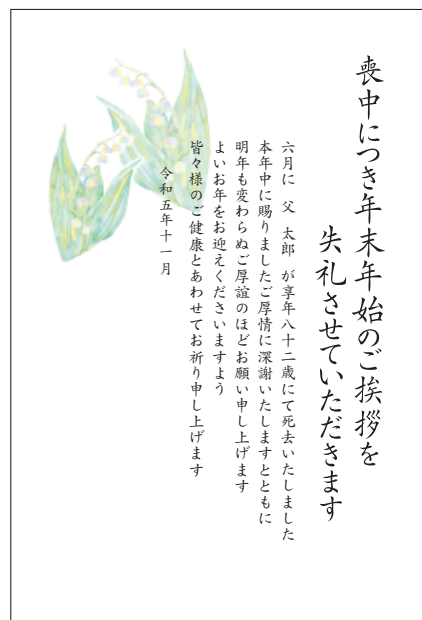 喪中につき年末年始のご挨拶を
失礼させていただきます
六月に　父　太郎　が享年八十二歳にて死去いたしました
本年中に賜りましたご厚情に深謝いたしますとともに
明年も変わらぬご厚誼のほどお願い申し上げます
よいお年をお迎えくださいますよう
皆々様のご健康とあわせてお祈り申し上げます
令和五年十一月